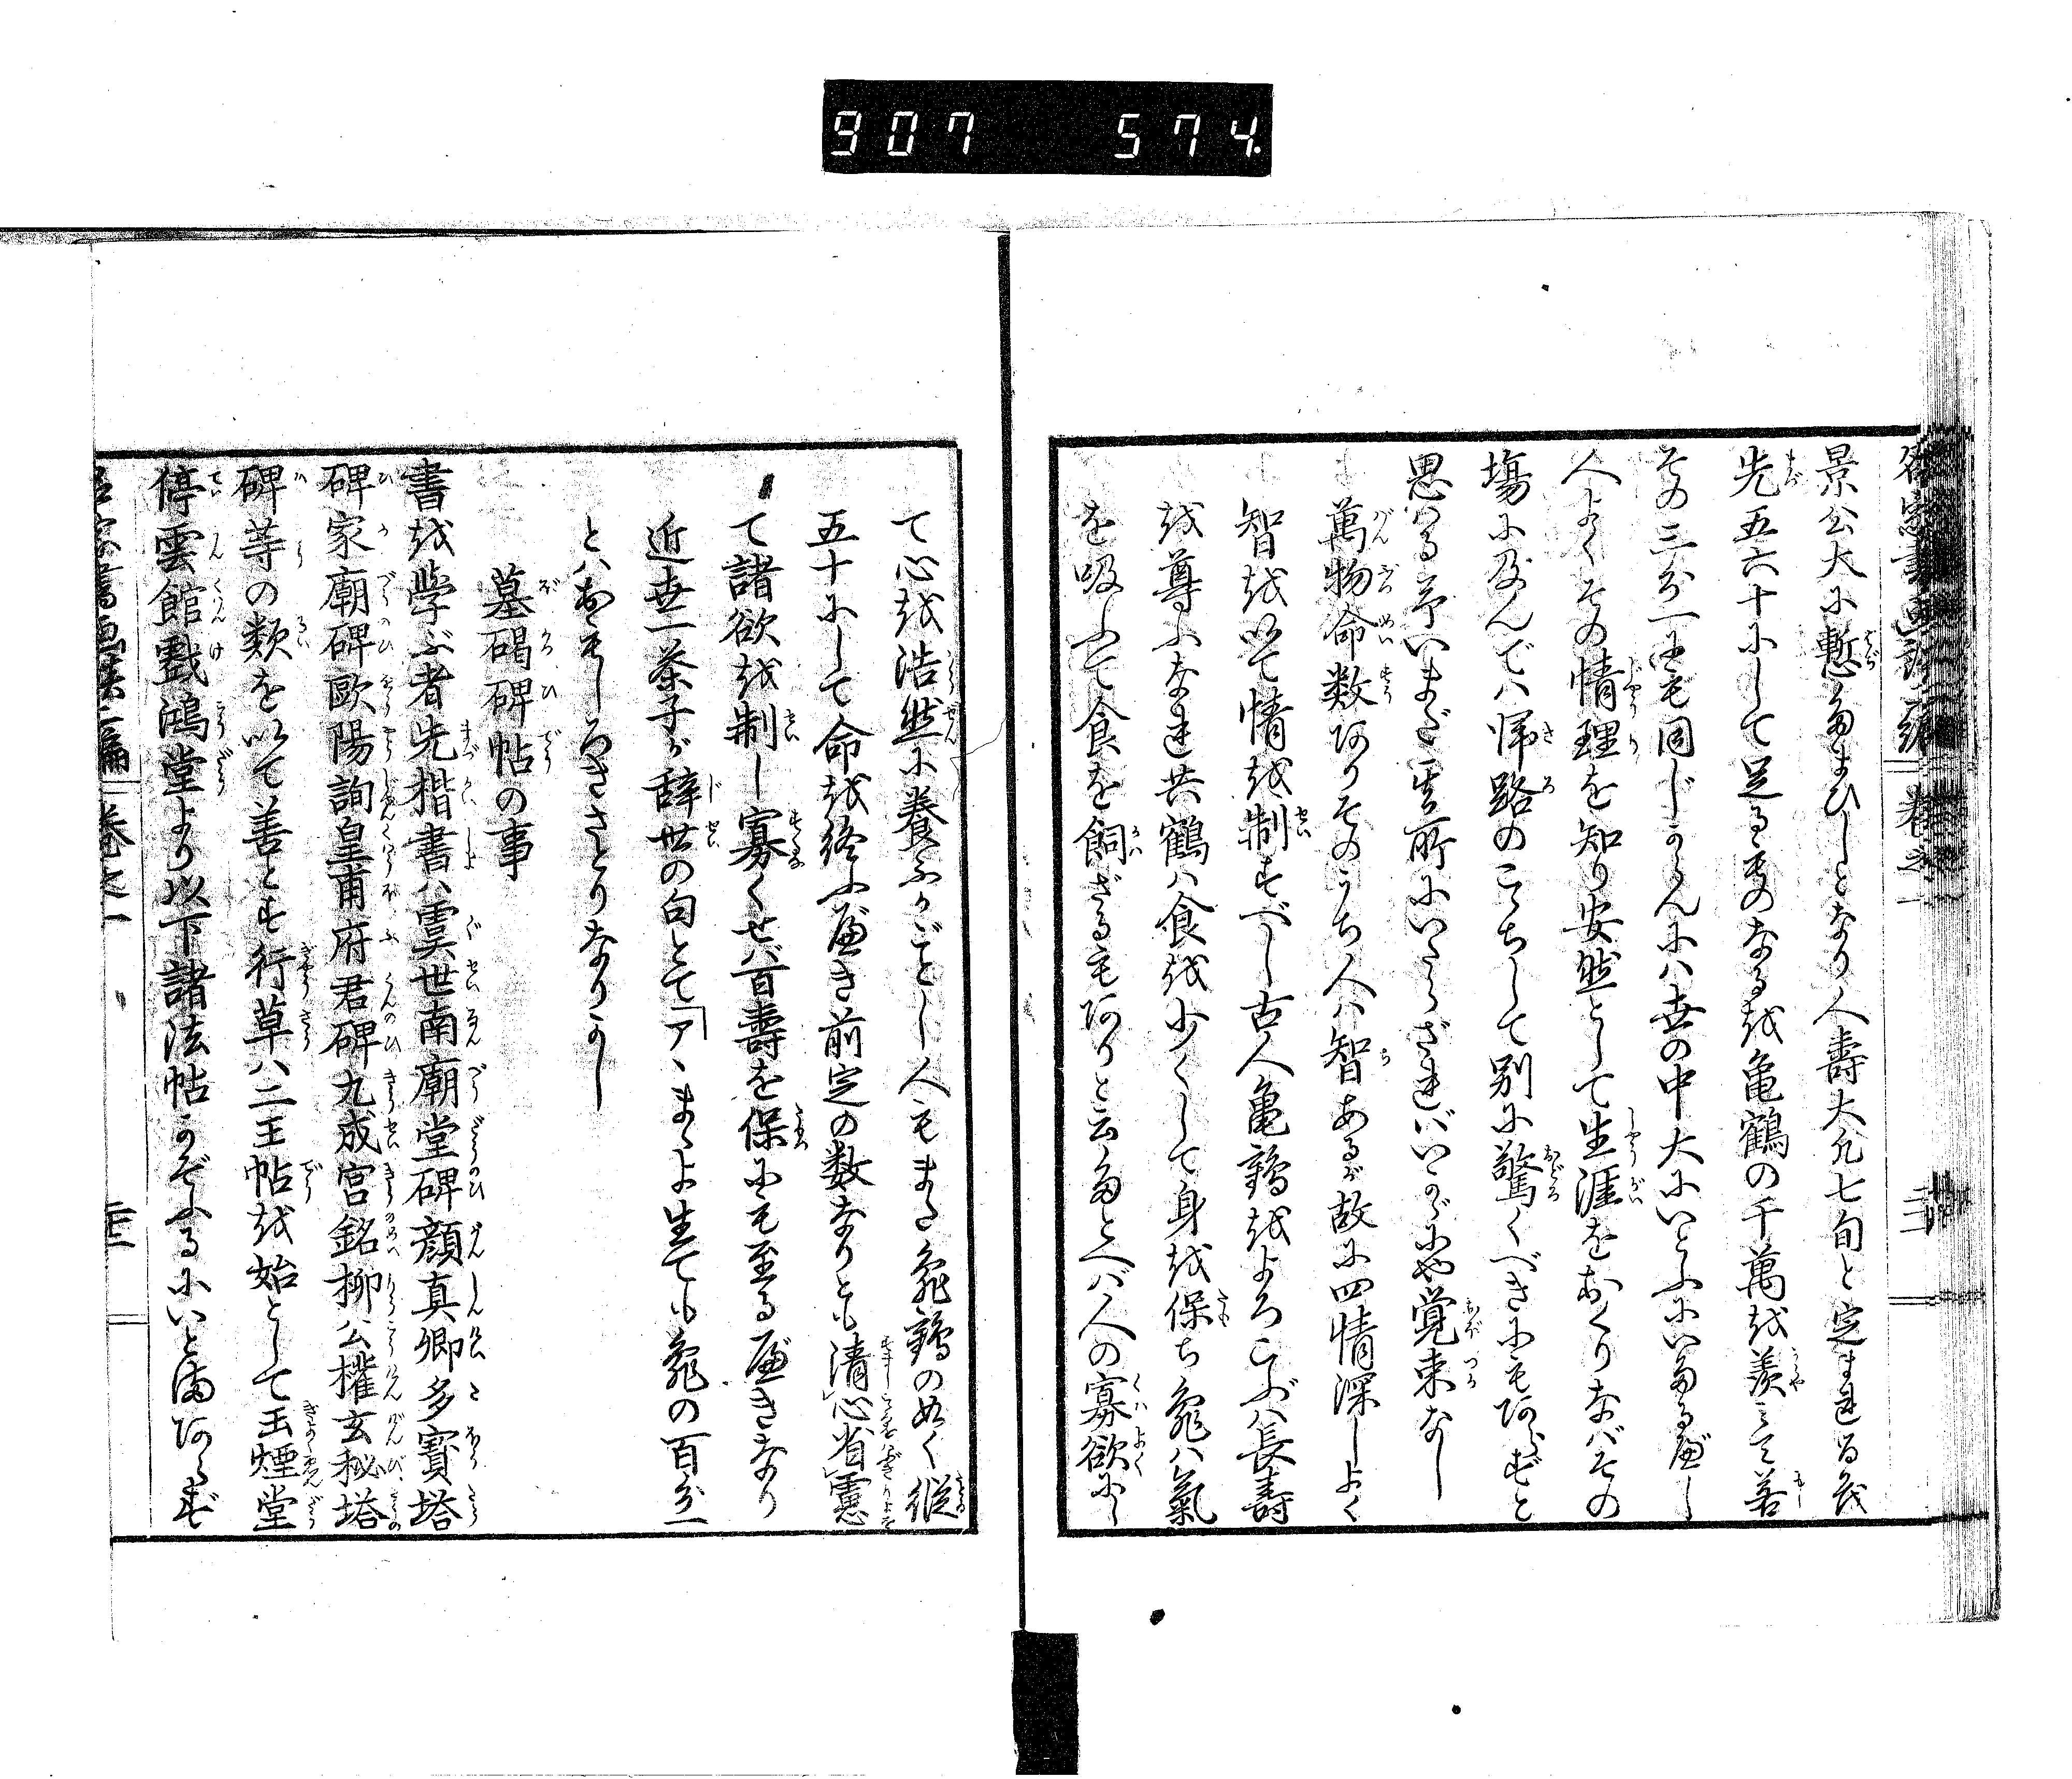 907 574
景公大に慙たまひしとなり人壽大凡七旬と定まれる哉
先五六十にして足るべきのなる越亀鶴の千萬越羨ミて若
その三分一にも同じからんにハ世の中大にいとふにいたるべし
人よくその情理を知り安然として生涯をおくりなバその
場に及んでハ帰路のこゝちして別に驚くべきにもあらずと
思へる予いまだ其所にいたらざれバいかゞにや覚束なし
萬物命数ありそのうち人ハ智あるが故に四情深しよく
智越以て情越制すべし古人亀鶴越よろこぶハ長壽
越尊ふなれ共鶴ハ食越少くして身越保ち亀ハ氣
を吸ふて食を飼ざるもありと云たとへバ人の寡欲にし
て心越浩然に養ふがごとし人もまた亀鶴の如く縦
五十にして命越終ふべき前定の数なりとも清心省慮
て諸欲越制し寡くせバ百壽を保にも至るべきなり
近世一茶子が辞世の句とて「アヽまゝよ生ても亀の百分一
とハおもしろきさとりなりかし
墓碣碑帖の事
書越学ぶ者先楷書ハ虞世南廟堂碑顔真卿多寳塔
碑家廟碑歐陽詢皇甫府君碑九成宮銘柳公權玄秘塔
碑等の類を以て善とす行草ハ二王帖越始として玉煙堂
停雲館戲鴻堂より以下諸法帖かぞふるにいとまあらず
卷之一